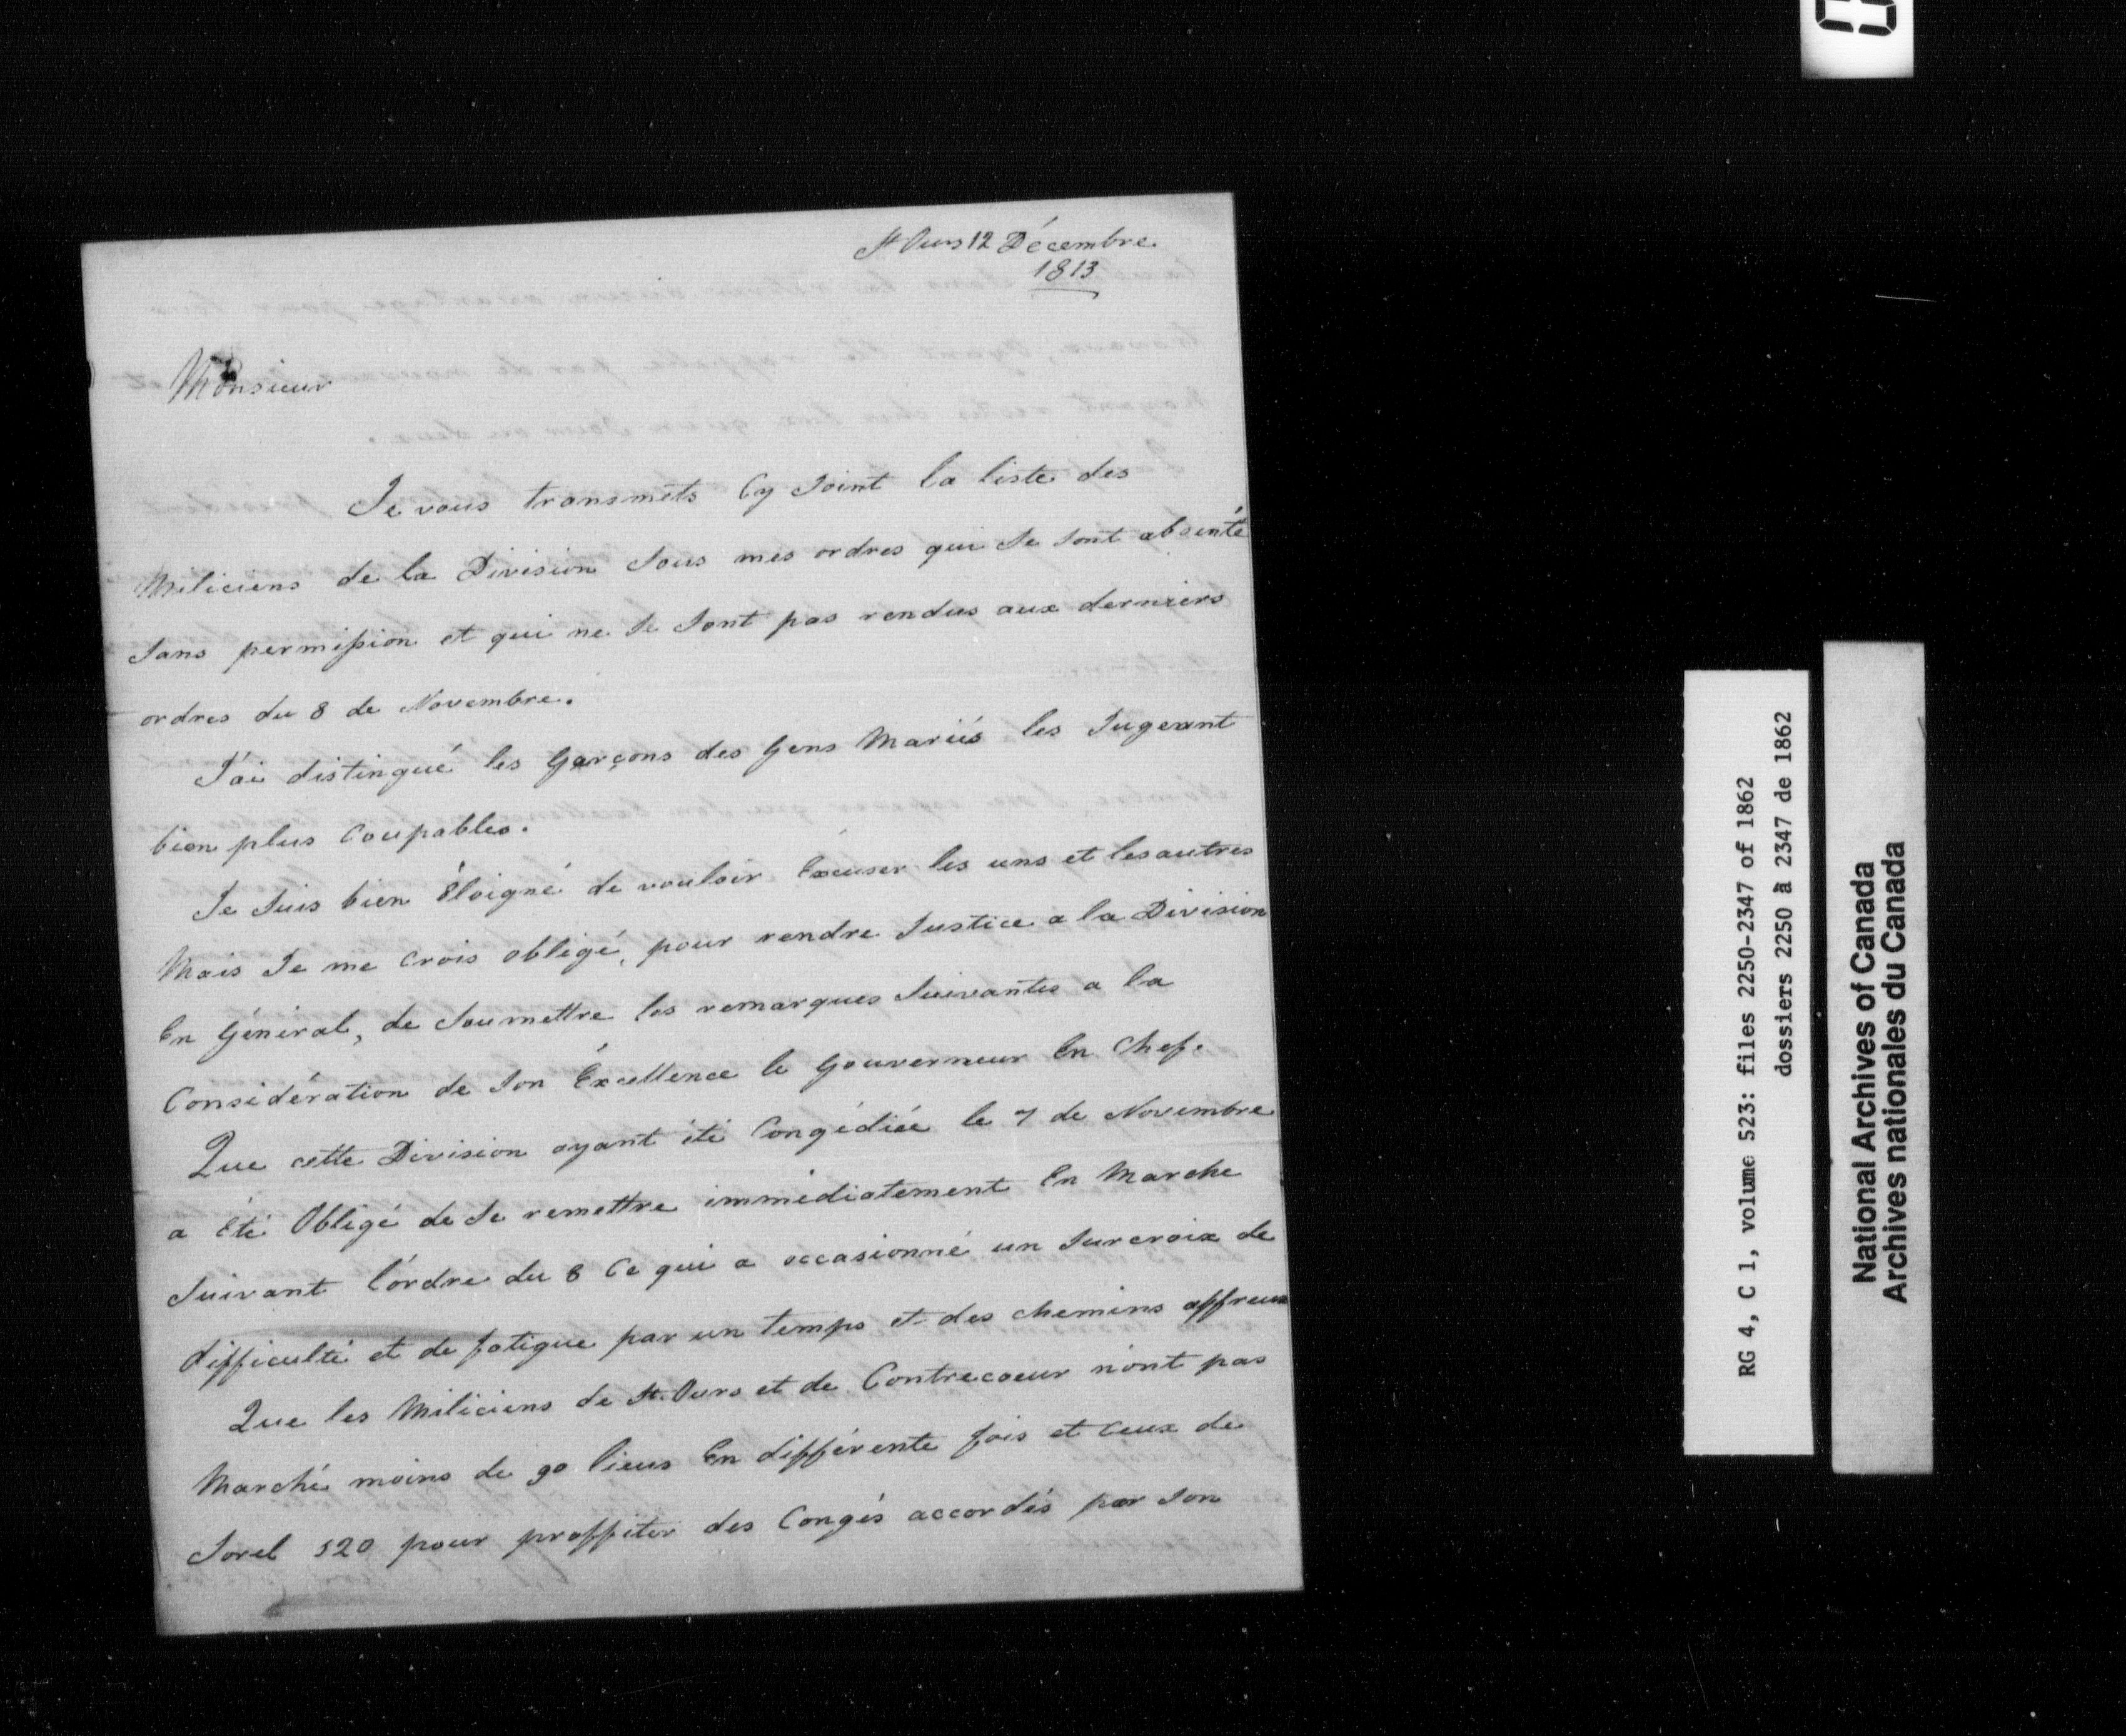 St Ours 12 Décembre
1813
Monsieur
Je vous transmets Cy Joint la liste des
Miliciens de la Division Sous mes ordres qui Se Sont absenté
Sans permission et qui ne Se Sont pas rendus aux derniers
ordres du 8 de Novembre.
J'ai distingué les Garçons des Gens Mariés les Jugeant
bien plus Coupables.
Je Suis bien Éloigné de vouloir Excuser les uns et les autres
Mais Je me Crois obligé, pour rendre Justice a la Division
En Général, de Soumettre les remarques Suivantes a la
Considération de Son Éxcellence le Gouverneur En Chef.
Que cette Division ayant été Congédiée le 7 de Novembre
a Été Obligé de Se remettre immédiatement En Marche
Suivant l'ordre du 8 Ce qui a occasionné un Surcroix de
difficulté et de fatigue par un temps et des chemins affreux
Que les Miliciens de St. Ours et de Contrecoeur n'ont pas
Marché moins de 90 lieus En différente fois et Ceux de
Sorel 120 pour proffiter des Congés accordés par Son
RG 4, C 1, volume 523: files 2250-2347 of 1862
dossiers 2250 à 2347 de 1862
National Archives of Canada
Archives nationales du Canada